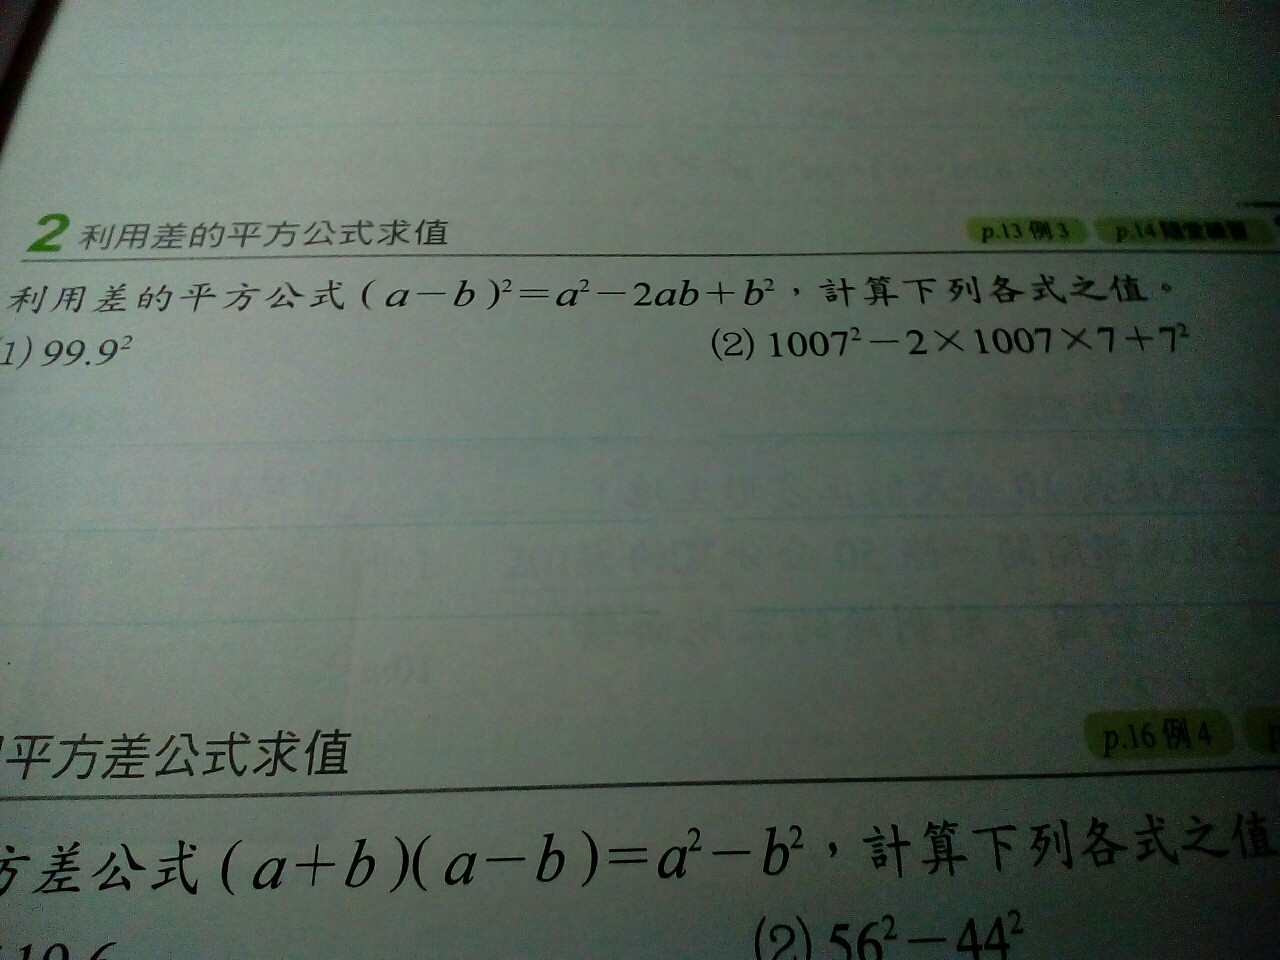 2 利用差的平方公式求值 p.13 例 3 p.14 隨堂練習
利用差的平方公式(a－b)²＝a²－2ab＋b²，計算下列各式之值。
(1) 99.9² (2) 1007²－2×1007×7＋7²
平方差公式求值 p.16 例 4
方差公式(a＋b)(a－b)＝a²－b²，計算下列各式之值
(2) 56²－44²